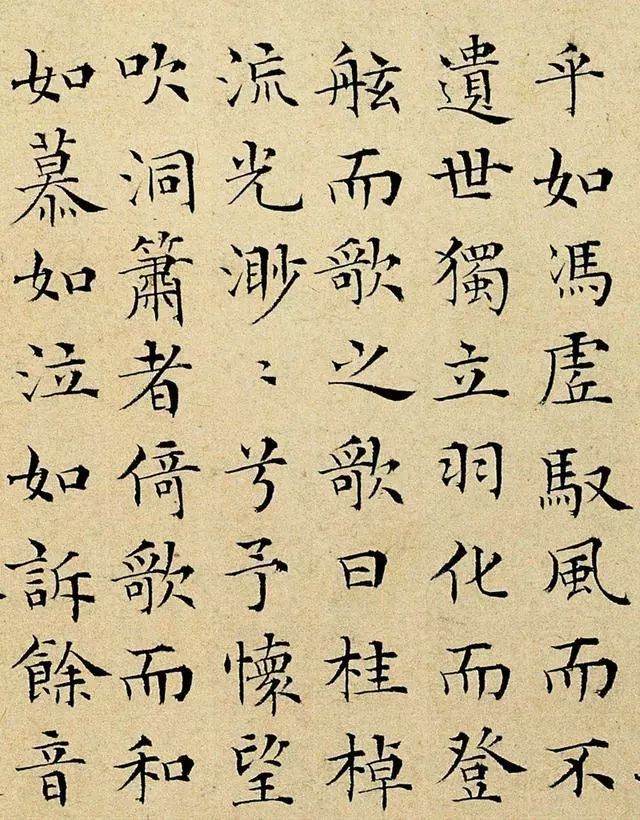 乎如馮虗馭風而不
遺世獨立羽化而登
舷而歌之歌曰桂棹
流光渺〻兮予懷望
吹洞簫者倚歌而和
如慕如泣如訴餘音